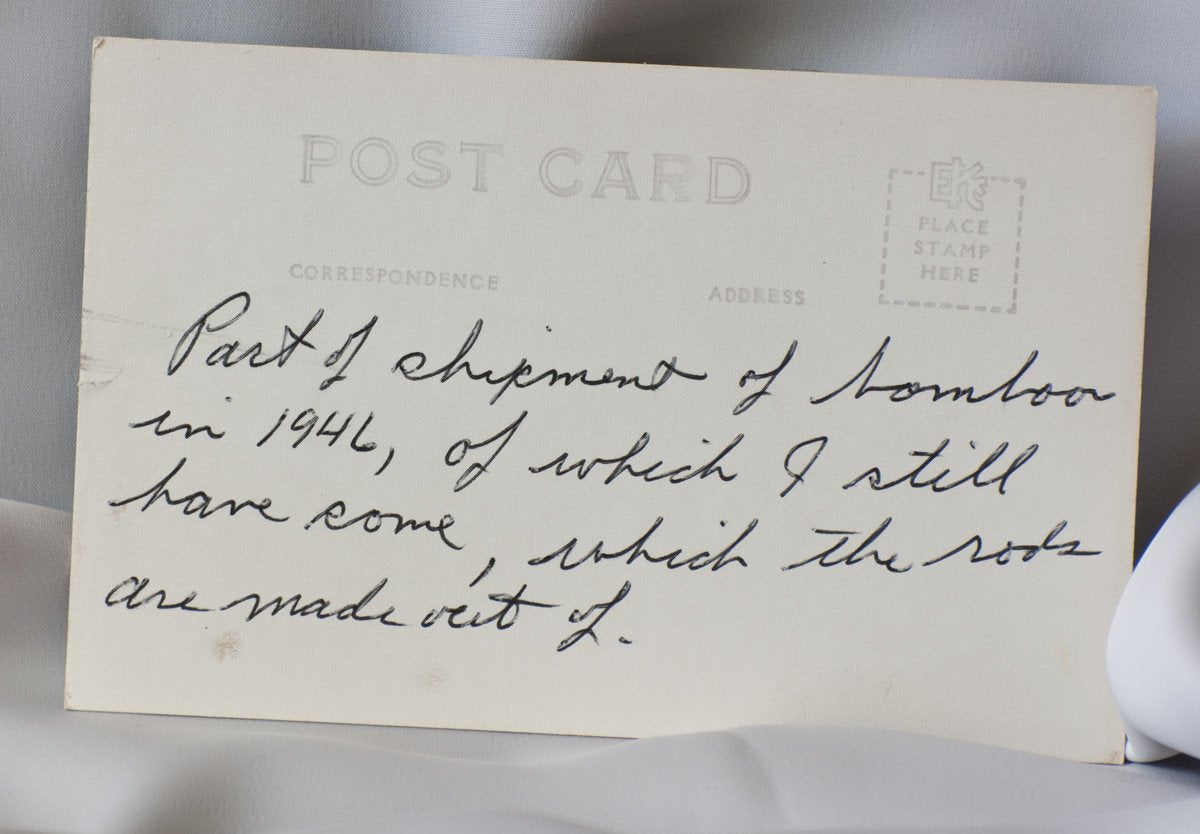 POST CARD
EKC
PLACE
STAMP
HERE
CORRESPONDENCE
ADDRESS
Part of shipment of bamboo
in 1946, of which I still
have some, which the rods
are made out of.